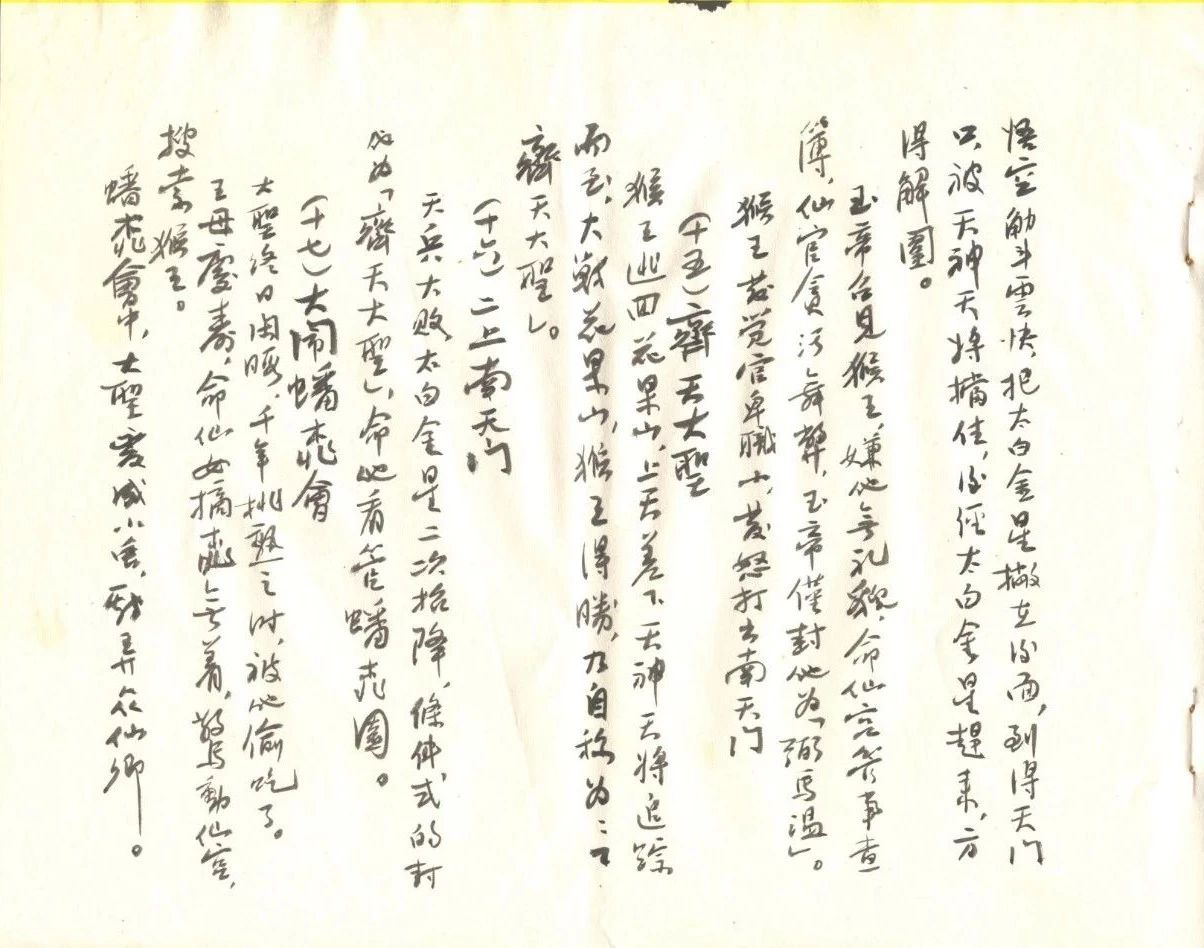 悟空觔斗雲快,把太白金星撇在後面,到得天门
只被天神天將擋住,後經太白金星趕來,方
得解圍。
玉帝召見猴王,嫌他無礼貌,命仙官答事查
簿,仙官貪污舞弊,玉帝僅封他為「弼馬温」。
猴王發觉官卑職小,發怒打出南天门
(十五)齊天大聖
猴王逃回花果山,上天差下天神天將追踪
而至,大戰花果山,猴王得勝,乃自稱為:「
齊天大聖」。
(十六)二上南天门
天兵大敗,太白金星二次招降,條件式的封
他为「齊天大聖」,命他看管蟠桃園。
(十七)大闹蟠桃會
大聖終日困睡,千年桃熟之时,被他偷吃了。
王母慶壽,命仙女摘桃無着,驚動仙官,
搜索猴王。
蟠桃會中,大聖变成小童,戲弄众仙卿—。